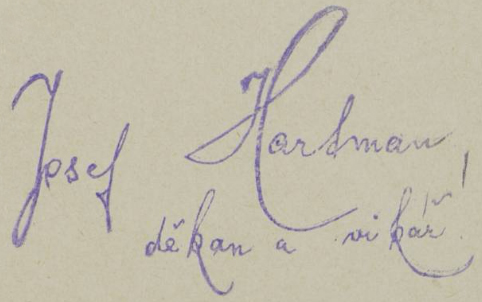 Josef Hartman,
děkan a vikář.